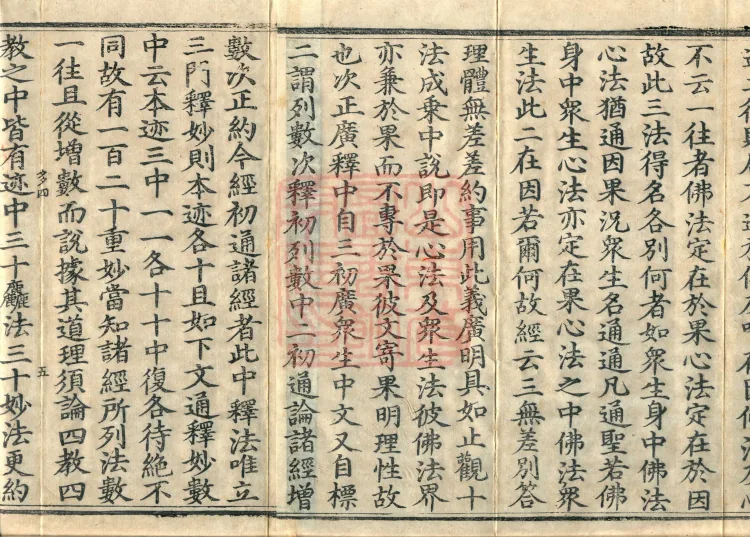 不云一往者佛法定在於果心法定在於因
故此三法得名各別何者如衆生身中佛法
心法猶通因果況衆生名通通凡通聖若佛
身中衆生心法亦定在果心法之中佛法衆
生法此二在因若爾何故經云三無差別答
理體無差差約事用此義廣明具如止觀十
法成乗中說即是心法及衆生法彼佛法界
亦兼於果而不專於果彼文寄果明理性故
也次正廣釋中自三初廣衆生中文又自標
二謂列數次釋初列數中二初通論諸經增
數次正約今經初通諸經者此中釋法唯立
三門釋妙則本迹各十且如下文通釋妙數
中云本迹三中一一各十十中復各待絶不
同故有一百二十重妙當知諸經所列法數
一往且從增數而說據其道理須論四教四
教之中皆有迹中三十麤法三十妙法更約
五